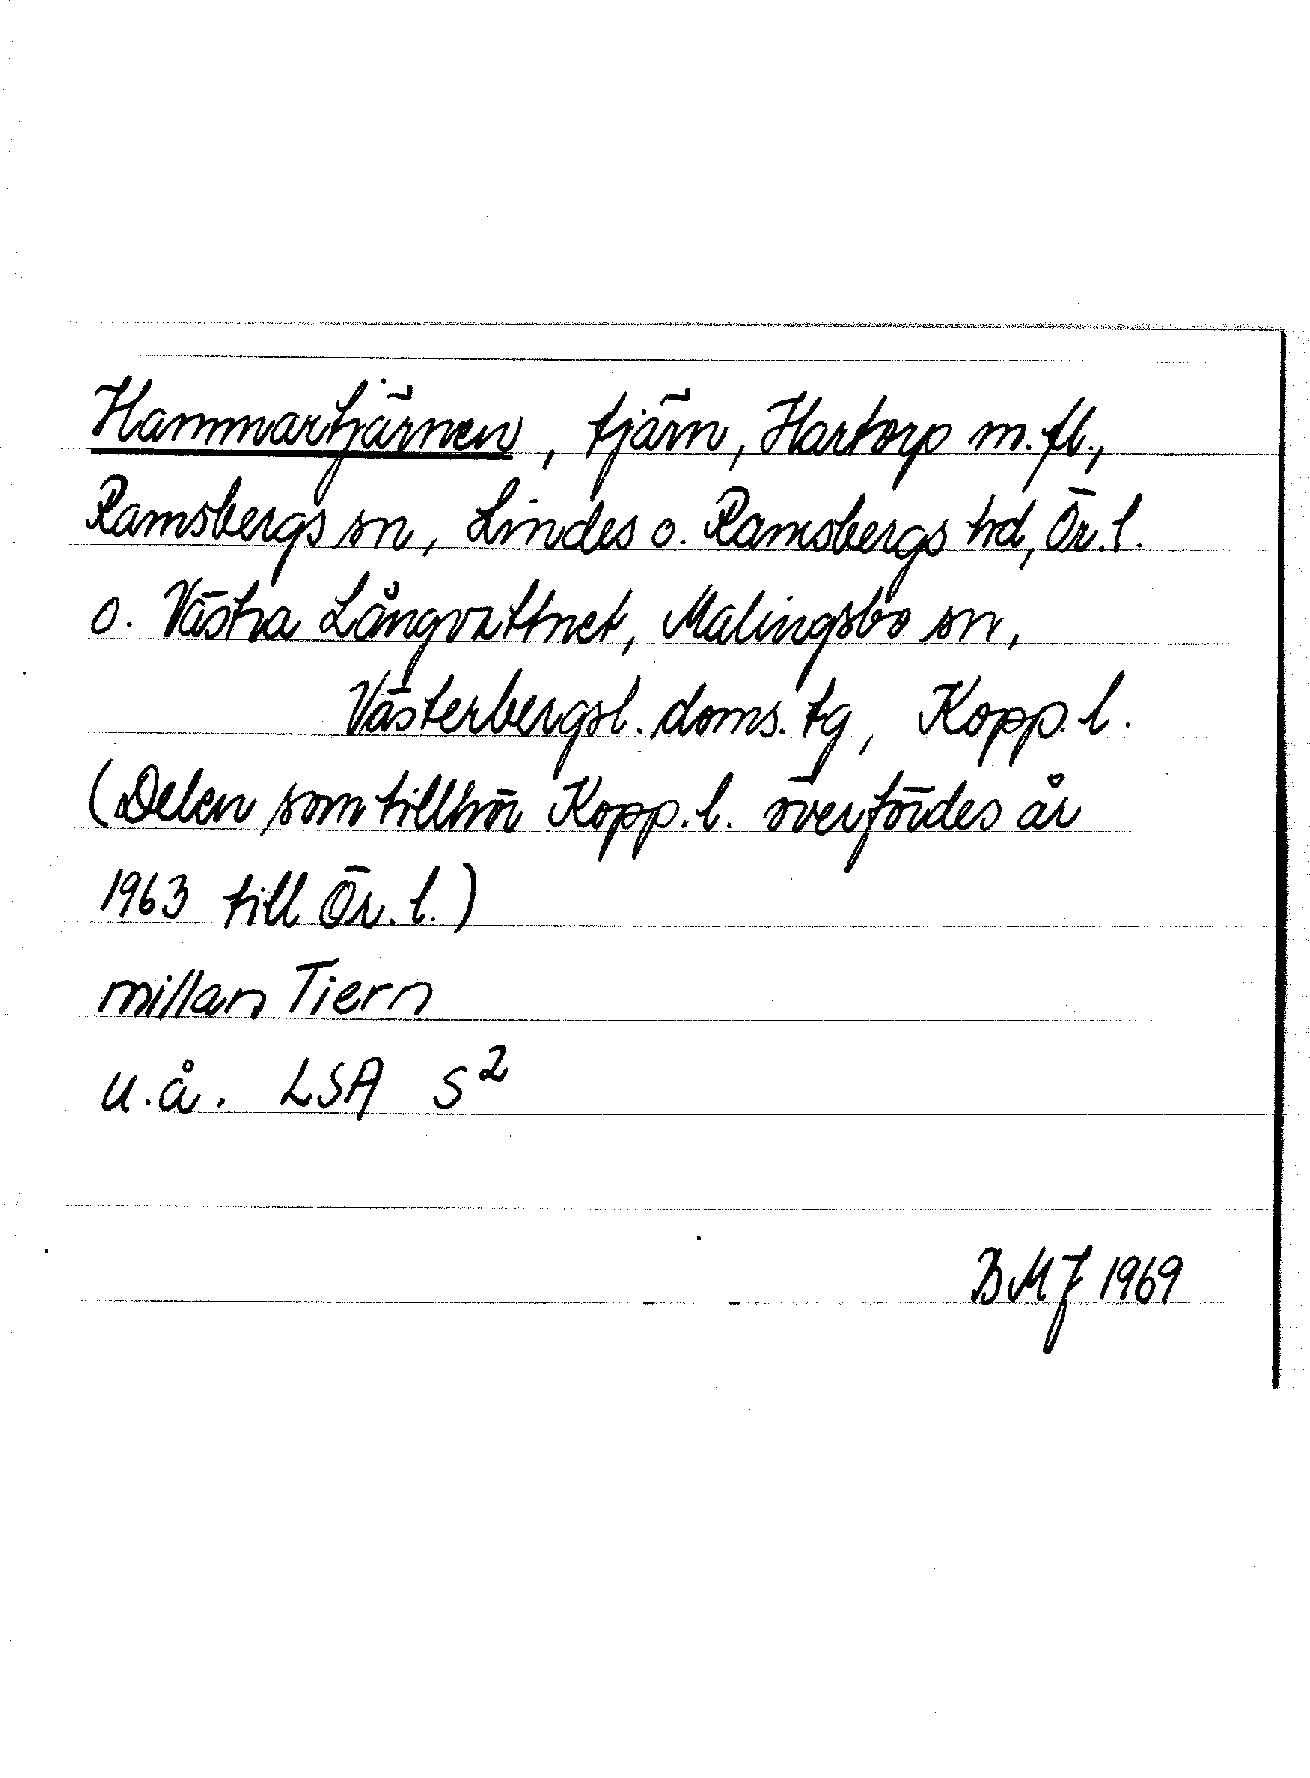 Hammartjärnen, tjärn, Hartorp m.fl.,
Ramsbergs sn, Lindes o. Ramsbergs hd, Ör.l.
o. Västra Långvattnet, Malingsbo sn,
Västerbergsl. doms. tg, Kopp.l.
(Delen som tillhör Kopp.l. överfördes år
1963 till Ör.l.)
millan Tiern
u.å. LSA S²
BMJ 1969